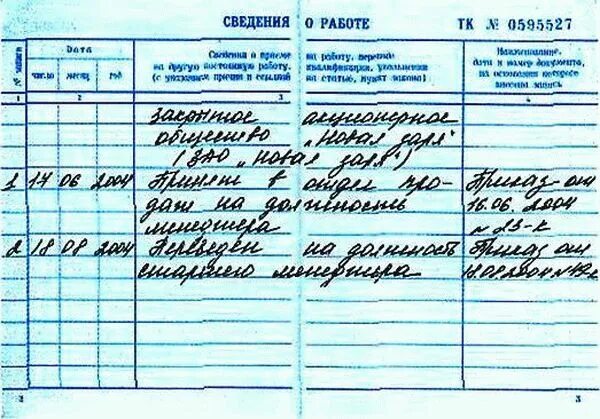 СВЕДЕНИЯ О РАБОТЕ ТК № 0595527
№ записи
Дата
число месяц год
Сведения о приеме на работу, переводе
на другую постоянную работу, квалификации, увольнении
(с указанием причин и ссылкой на статью, пункт закона)
Наименование,
дата и номер документа,
на основании которого
внесена запись
1 2 3 4
Закрытое акционерное
общество „Новая заря"
(ЗАО „Новая заря")
1 17 06 2004 Принят в отдел про- Приказ от
даж на должность 16.06.2004
менеджера № 23-к
2 18 08 2004 Переведен на должность Приказ от
старшего менеджера
2 3